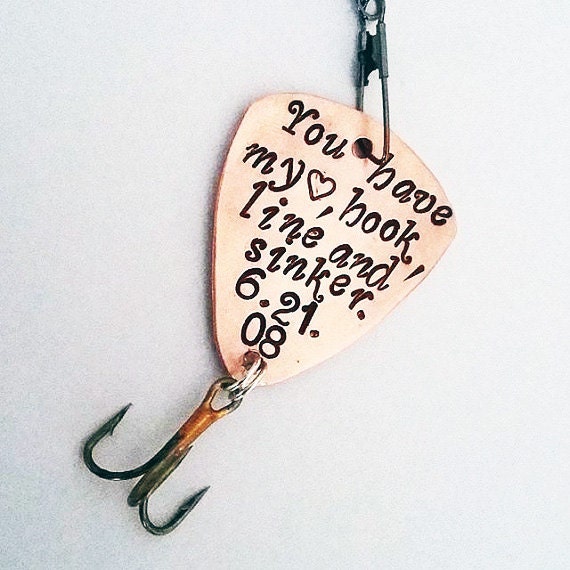 You have
my ♡ hook'
line' and'
sinker.
6.21.
08